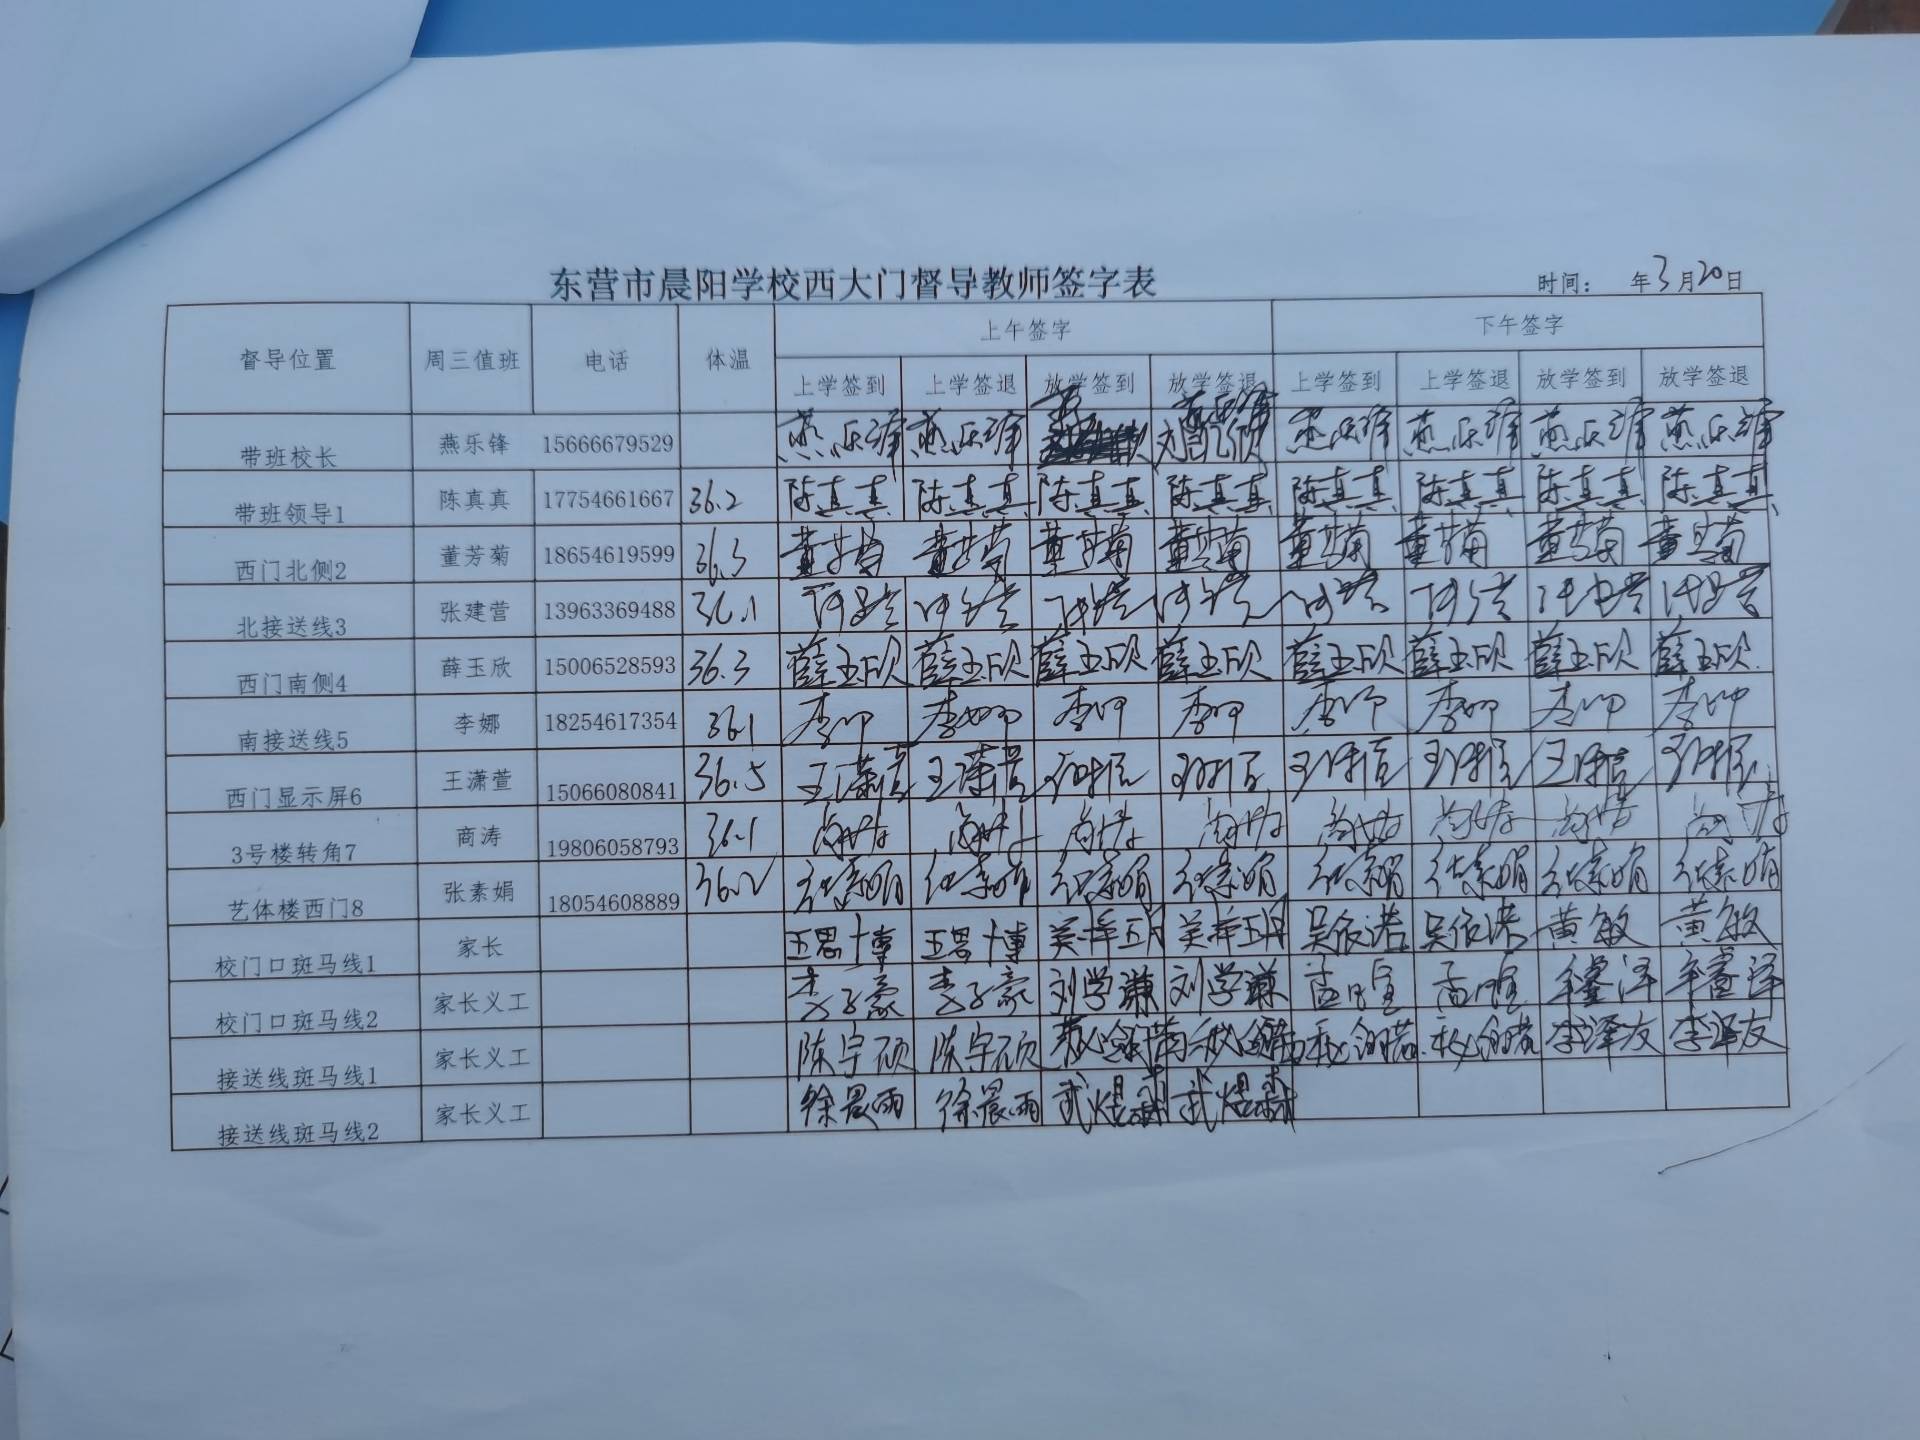 东营市晨阳学校西大门督导教师签字表
时间： 年3月20日
督导位置 周三值班 电话 体温 上午签字 下午签字
上学签到 上学签退 放学签到 放学签退 上学签到 上学签退 放学签到 放学签退
带班校长 燕乐锋 15666679529 燕乐锋 燕乐锋 燕乐锋 燕乐锋 燕乐锋 燕乐锋 燕乐锋
带班领导1 陈真真 17754661667 36.2 陈真真 陈真真 陈真真 陈真真 陈真真 陈真真 陈真真 陈真真
西门北侧2 董芳菊 18654619599 36.3 董芳菊 董芳菊 董芳菊 董芳菊 董芳菊 董芳菊 董芳菊 董芳菊
北接送线3 张建营 13963369488 36.1 张建营 张建营 张建营 张建营 张建营 张建营 张建营 张建营
西门南侧4 薛玉欣 15006528593 36.3 薛玉欣 薛玉欣 薛玉欣 薛玉欣 薛玉欣 薛玉欣 薛玉欣 薛玉欣
南接送线5 李娜 18254617354 36.1 李娜 李娜 李娜 李娜 李娜 李娜 李娜 李娜
西门显示屏6 王潇萱 15066080841 36.5 王潇萱 王潇萱 王潇萱 王潇萱 王潇萱 王潇萱 王潇萱 王潇萱
3号楼转角7 商涛 19806058793 36.1 商涛 商涛 商涛 商涛 商涛 商涛 商涛 商涛
艺体楼西门8 张素娟 18054608889 36.2 张素娟 张素娟 张素娟 张素娟 张素娟 张素娟 张素娟 张素娟
校门口斑马线1 家长 王思博 王思博 吴依诺 吴依诺 黄敏 黄敏
校门口斑马线2 家长义工 李子豪 李子豪 刘学谦 刘学谦 孟暄 孟暄
接送线斑马线1 家长义工 陈宇硕 陈宇硕 李泽友 李泽友
接送线斑马线2 家长义工 徐晨雨 徐晨雨 武煜森 武煜森